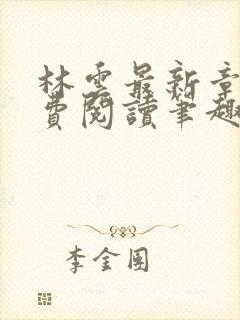 林雲最新章
費閱讀筆趣
李金團